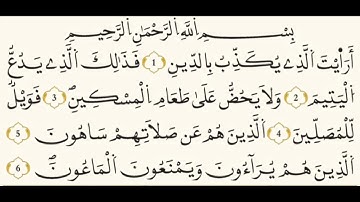 بِسْمِ اللَّهِ الرَّحْمَٰنِ الرَّحِيمِ
أَرَأَيْتَ الَّذِي يُكَذِّبُ بِالدِّينِ 1 فَذَٰلِكَ الَّذِي يَدُعُّ
الْيَتِيمَ 2 وَلَا يَحُضُّ عَلَىٰ طَعَامِ الْمِسْكِينِ 3 فَوَيْلٌ
لِّلْمُصَلِّينَ 4 الَّذِينَ هُمْ عَن صَلَاتِهِمْ سَاهُونَ 5
الَّذِينَ هُمْ يُرَاءُونَ وَيَمْنَعُونَ الْمَاعُونَ 6